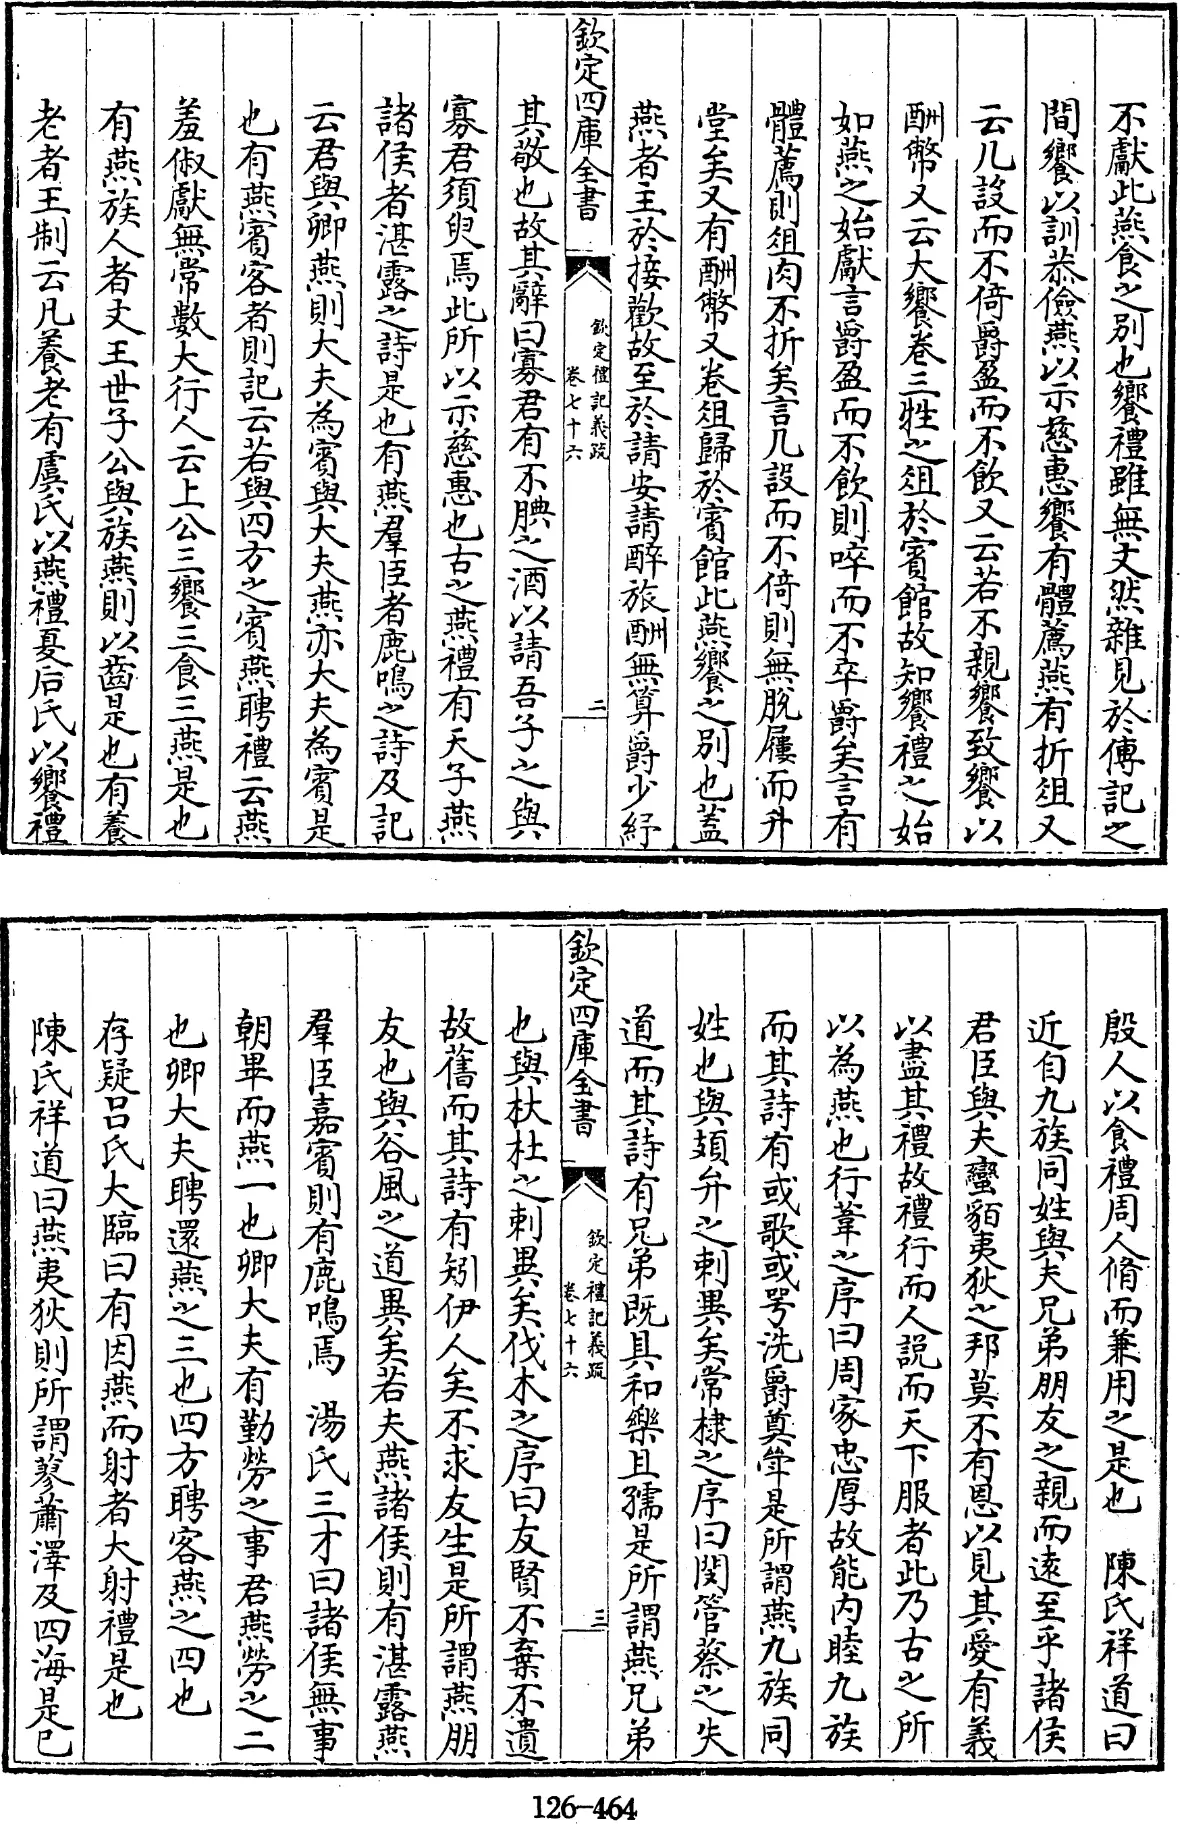 不獻此燕食之别也饗禮雖無文然雜見於傳記之
間饗以訓恭儉燕以示慈惠饗有體薦燕有折俎又
云几設而不倚爵盈而不飲又云若不親饗致饗以
酬幣又云大饗卷三牲之俎於賓館故知饗禮之始
如燕之始獻言爵盈而不飲則啐而不卒爵矣言有
體薦則俎肉不折矣言几設而不倚則無脫屨而升
堂矣又有酬幣又卷俎歸於賓館此燕饗之别也蓋
燕者主於接歡故至於請安請醉旅酬無算爵少紓
欽定四庫全書
欽定禮記義疏
卷七十六
二
其敬也故其辭曰寡君有不腆之酒以請吾子之與
寡君須臾焉此所以示慈惠也古之燕禮有天子燕
諸侯者湛露之詩是也有燕羣臣者鹿鳴之詩及記
云君與卿燕則大夫為賓與大夫燕亦大夫為賓是
也有燕賓客者則記云若與四方之賓燕聘禮云燕
羞俶獻無常數大行人云上公三饗三食三燕是也
有燕族人者文王世子公與族燕則以齒是也有養
老者王制云凡養老有虞氏以燕禮夏后氏以饗禮
殷人以食禮周人脩而兼用之是也 陳氏祥道曰
近自九族同姓與夫兄弟朋友之親而遠至乎諸侯
君臣與夫蠻貊夷狄之邦莫不有恩以見其愛有義
以盡其禮故禮行而人説而天下服者此乃古之所
以為燕也行葦之序曰周家忠厚故能内睦九族
而其詩有或歌或咢洗爵奠斝是所謂燕九族同
姓也與頍弁之刺異矣常棣之序曰閔管蔡之失
道而其詩有兄弟既具和樂且孺是所謂燕兄弟
欽定四庫全書
欽定禮記義疏
卷七十六
三
也與杕杜之刺異矣伐木之序曰友賢不棄不遺
故舊而其詩有矧伊人矣不求友生是所謂燕朋
友也與谷風之道異矣若夫燕諸侯則有湛露燕
羣臣嘉賓則有鹿鳴焉 湯氏三才曰諸侯無事
朝畢而燕一也卿大夫有勤勞之事君燕勞之二
也卿大夫聘還燕之三也四方聘客燕之四也
存疑吕氏大臨曰有因燕而射者大射禮是也
陳氏祥道曰燕夷狄則所謂蓼蕭澤及四海是已
126-464